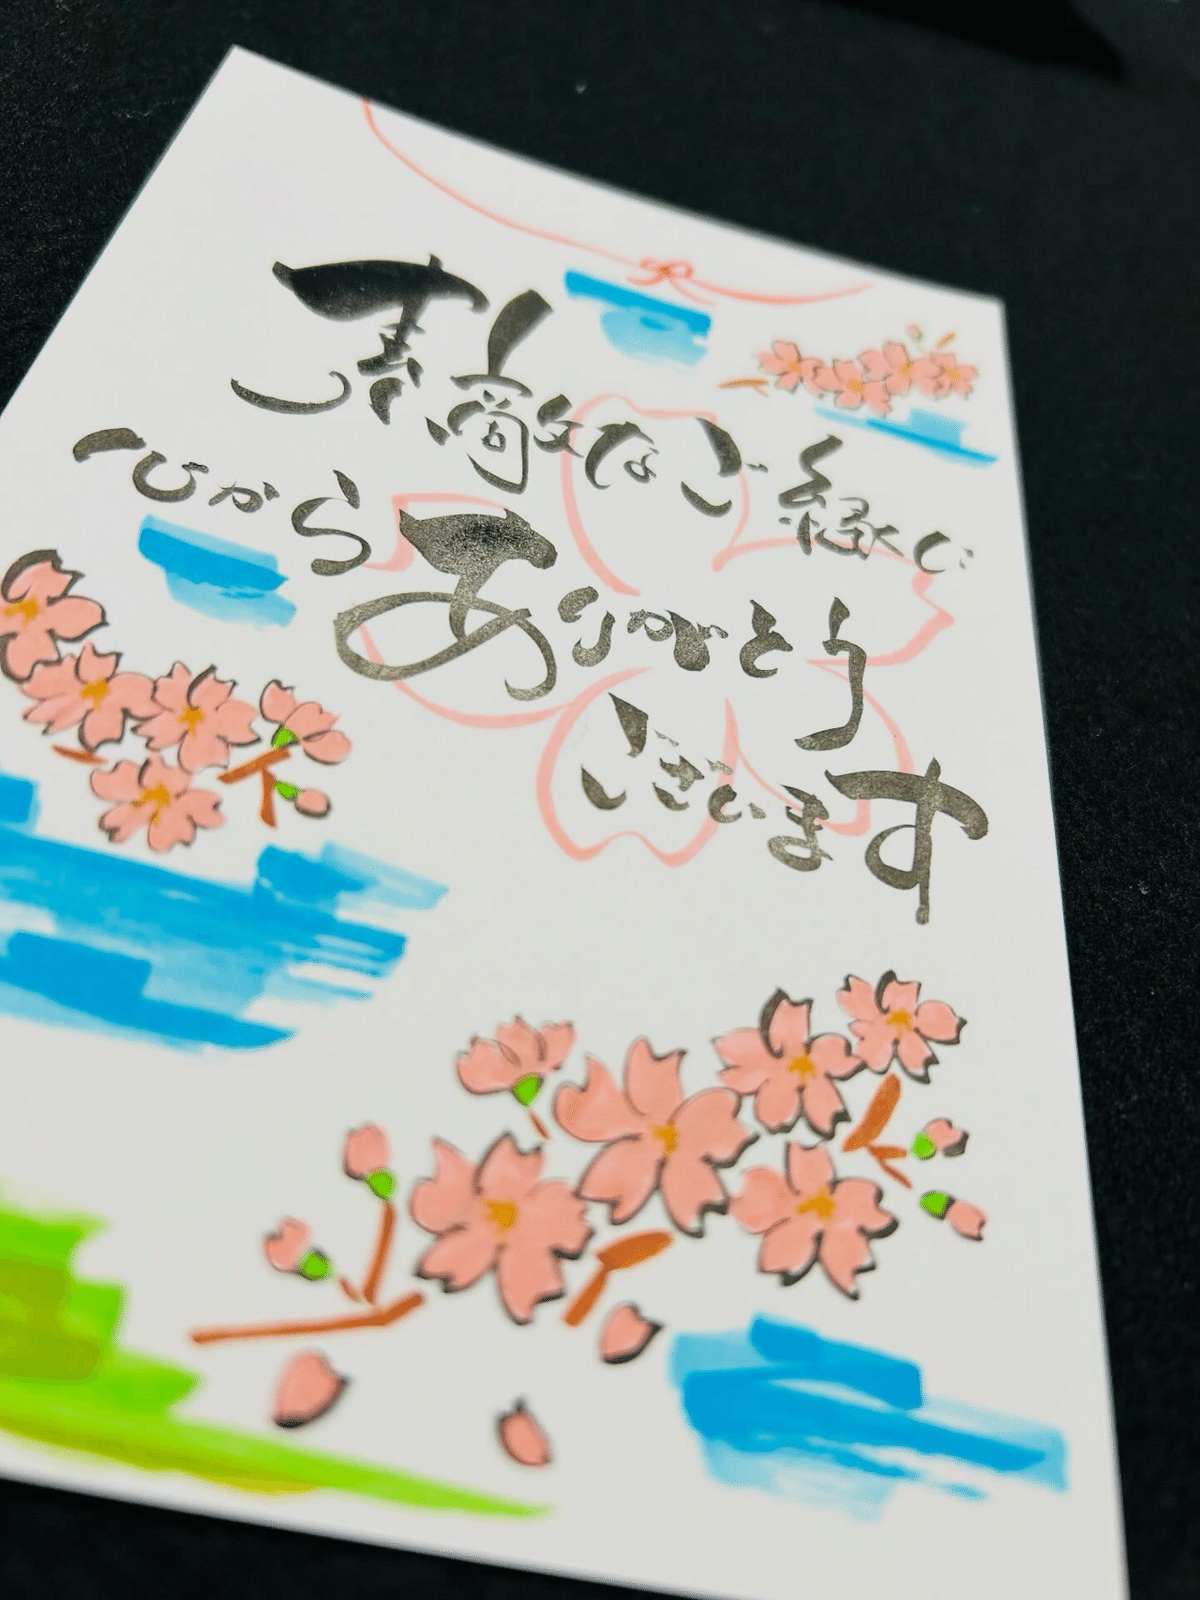 素敵なご縁に
心からありがとう
ございます